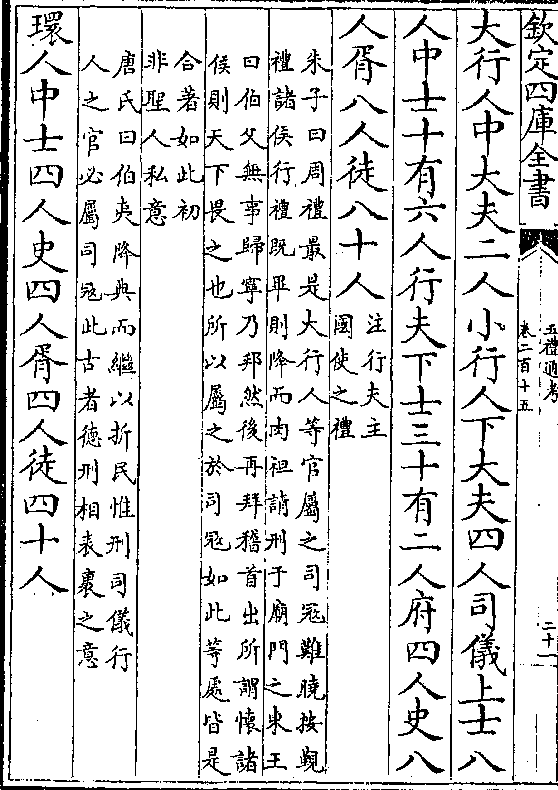 欽定四庫全書
五禮通考
卷二百十五
二十一
大行人中大夫二人小行人下大夫四人司儀上士八
人中士十有六人行夫下士三十有二人府四人史八
人胥八人徒八十人
注行夫主
國使之禮
朱子曰周禮最是大行人等官屬之司寇難曉按覲
禮諸侯行禮既畢則降而肉袒請刑于廟門之東王
曰伯父無事歸寧乃邦然後再拜稽首出所謂懷諸
侯則天下畏之也所以屬之於司寇如此等處皆是
合著如此初
非聖人私意
唐氏曰伯夷降典而繼以折民惟刑司儀行
人之官必屬司寇此古者德刑相表裏之意
環人中士四人史四人胥四人徒四十人